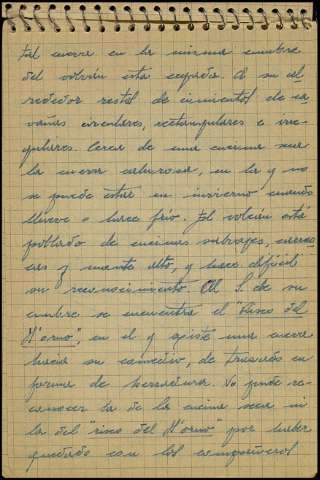 tal cueva en la misma cumbre
del volcán está cegada. A su al
rededor restos de cimientos de ca
vañas circulares, rectangulares e irre
gulares. Cerca de una encima
la cueva calurosa, en la q no
se puede estar en invierno cuando
llueve o hace frío. El volcán está
poblado de encinas salvajes,
y monte alto, y hace difícil
su reconocimiento. Al S. de su
cumbre se encuentra el "Risco del
H'orno", en el q existe una cueva
hacia su comedio, de
forma de herradura. No pude re-
conocer la de la encima ni
la del "risco del H'orno" por haber
quedado con los compañeros